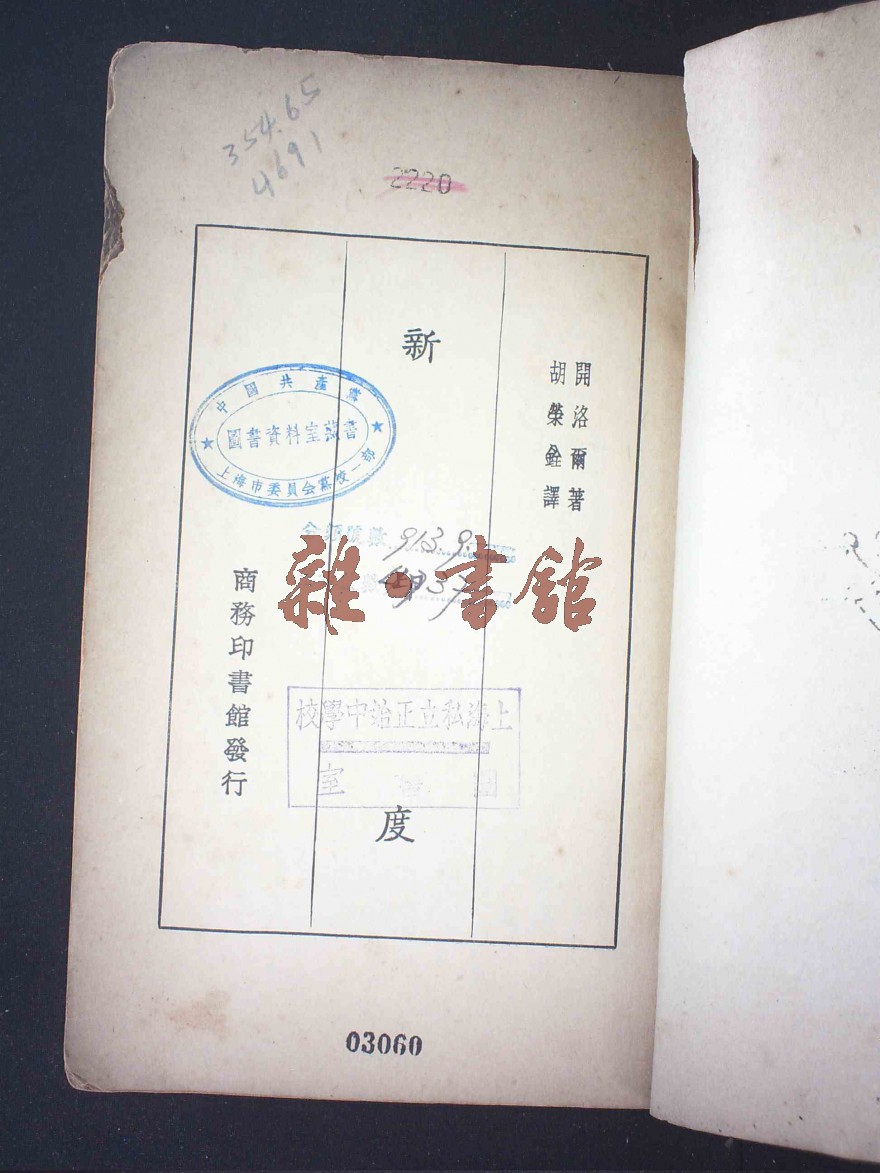 354.65
4691
2220
開洛爾著
胡榮銓譯
新
度
商務印書館發行
中國共產黨
圖書資料室藏書
上海市委員会黨校一部
913.9
雜書館
上海私立正始中學校
圖 室
03060